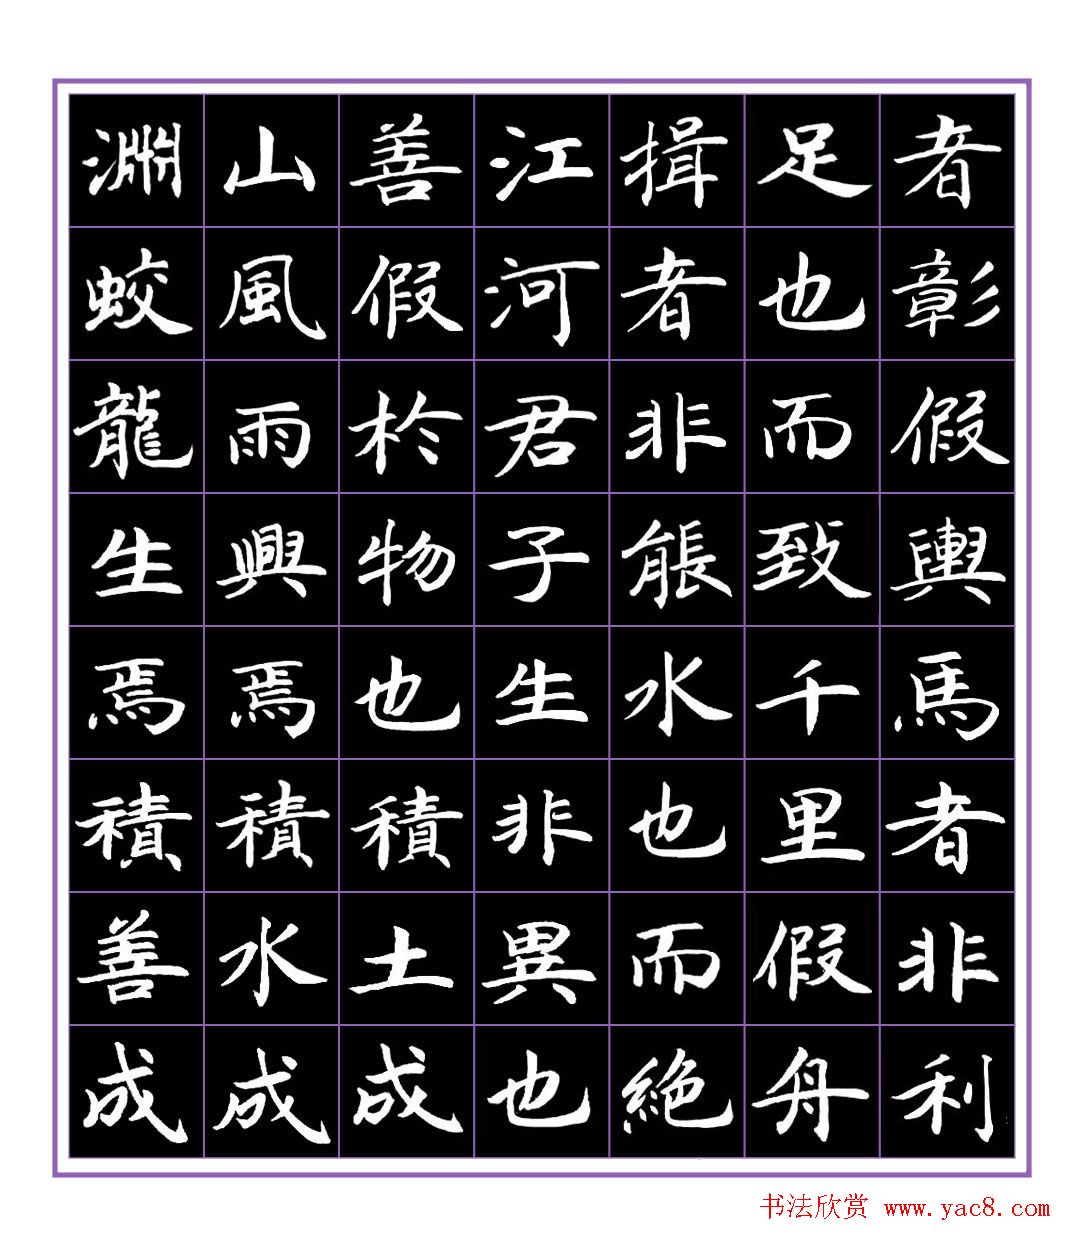 者彰假輿馬者非利
足也而致千里假舟
揖者非能水也而絶
江河君子生非異也
善假於物也積土成
山風雨興焉積水成
淵蛟龍生焉積善成
书法欣赏 www.yac8.com